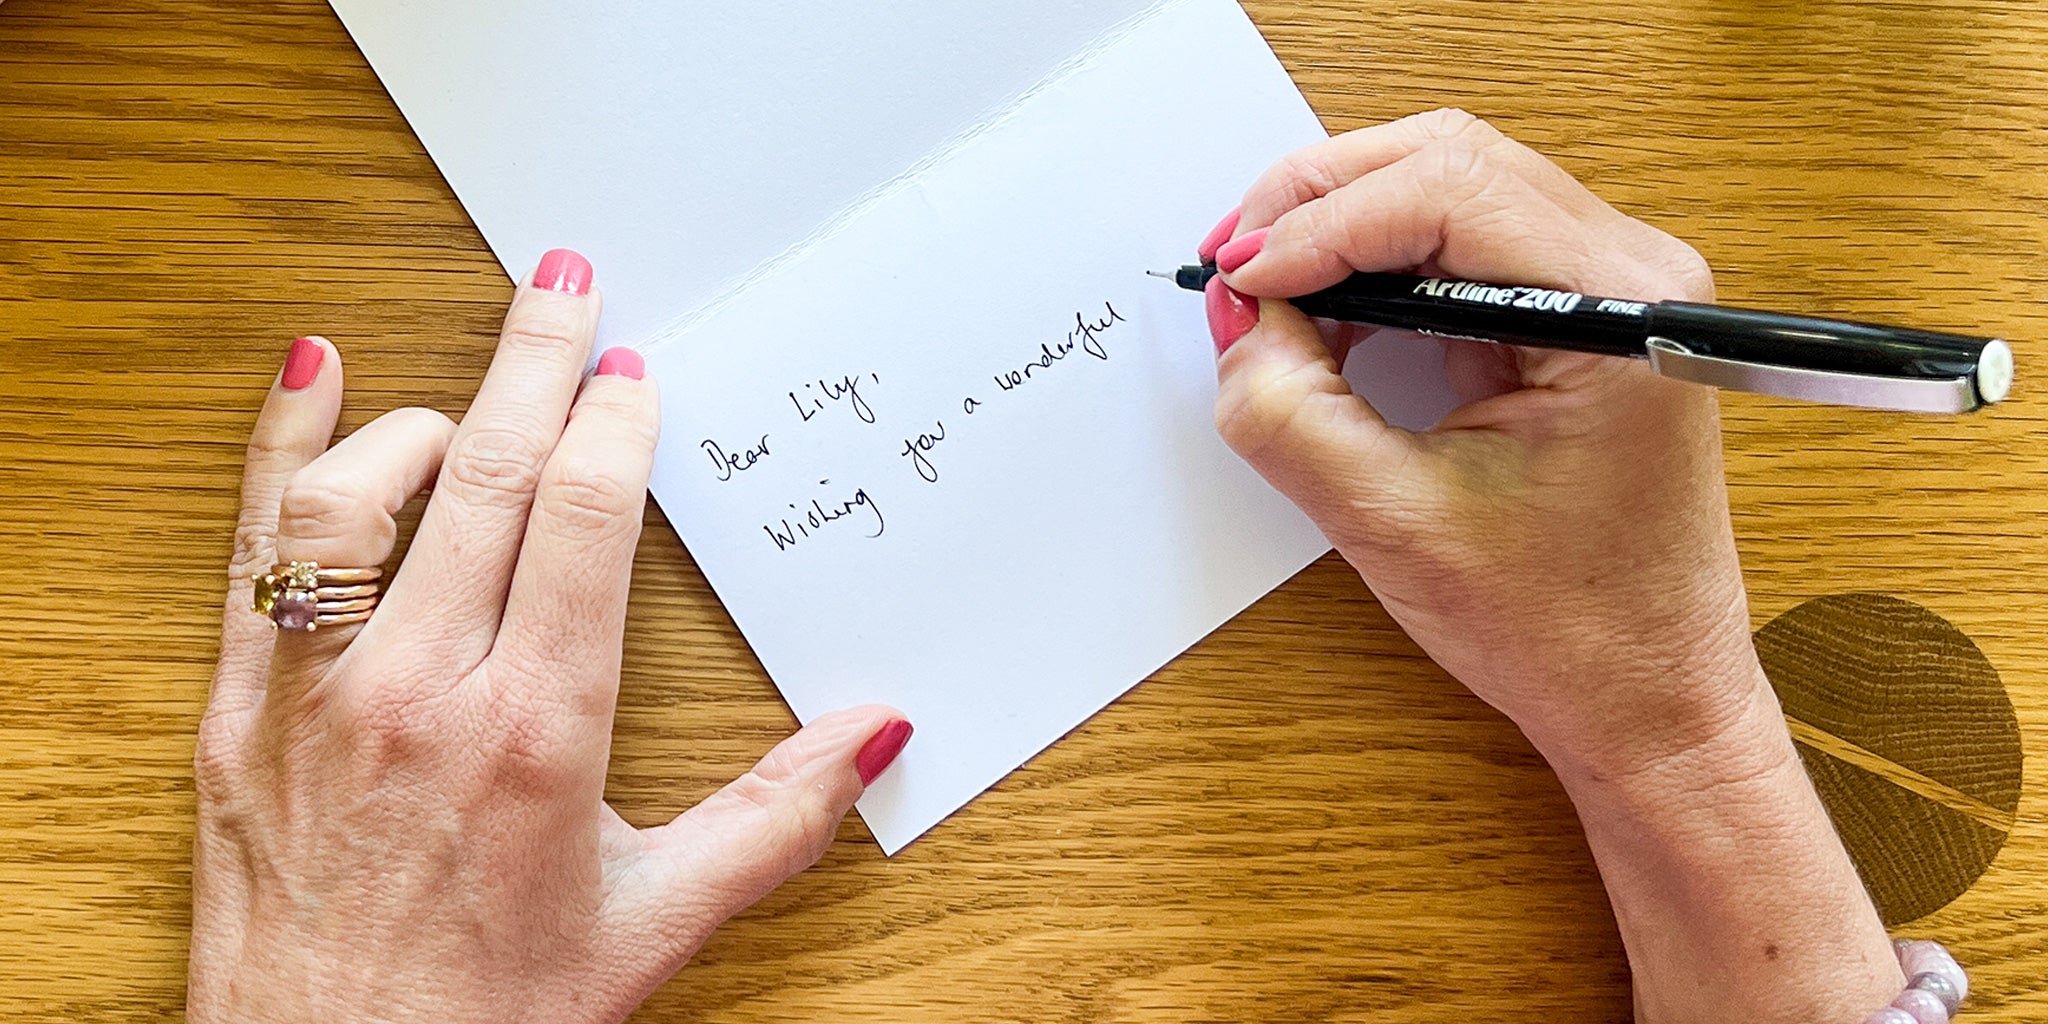 Dear Lily,
Wishing you a wonderful
Artline 200 FINE